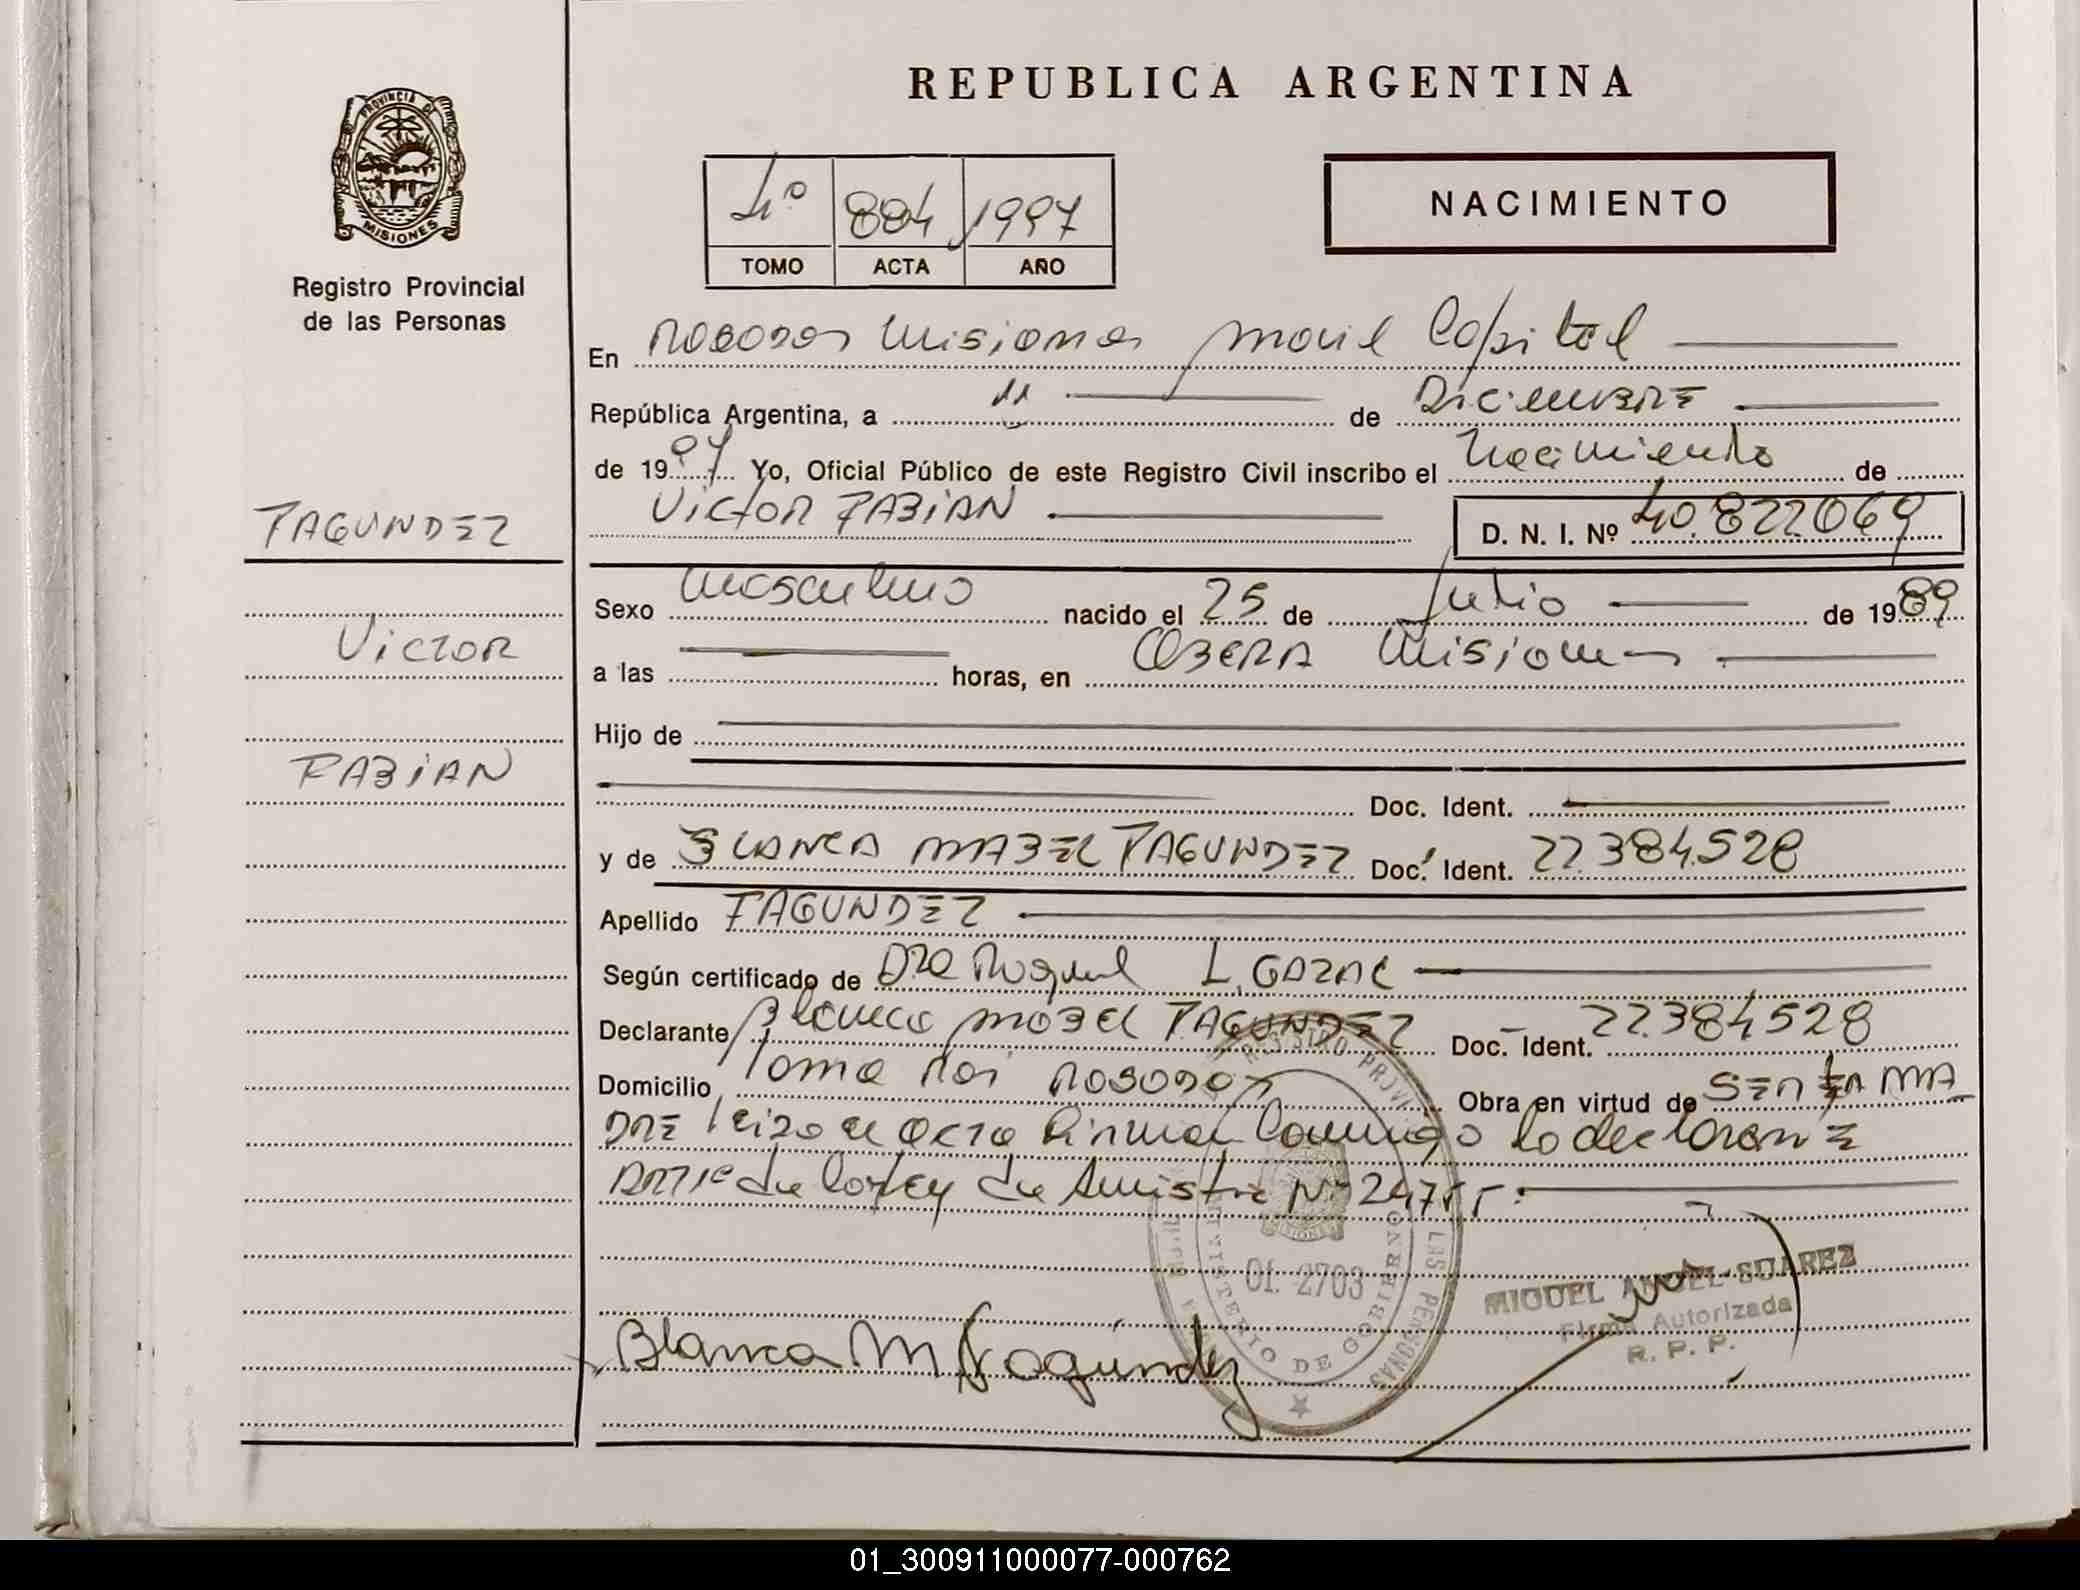 REPUBLICA ARGENTINA
PROVINCIA DE
MISIONES
Registro Provincial
de las Personas
4º 884 1997
TOMO ACTA AÑO
NACIMIENTO
En Posadas Misiones Movil Capital
República Argentina, a 11 de Diciembre
de 1997 Yo, Oficial Público de este Registro Civil inscribo el Nacimiento de
Victor FABiAN D. N. I. Nº 40.822069
FAGUNDEZ
Victor
FABiAN
Sexo Masculino nacido el 25 de Julio de 1989
a las horas, en OBERA Misiones
Hijo de
Doc. Ident.
y de BLANCA MABEL FAGUNDEZ Doc. Ident. 22.384.528
Apellido FAGUNDEZ
Según certificado de Dra Raquel L.
Declarante Blanca MABEL FAGUNDEZ Doc. Ident. 22.384528
Domicilio Posadas Obra en virtud de SER LA MA
DRE Leida el Acta Firma Conmigo la declarante
de la Ley de Amnistia Nº
REGISTRO PROVINCIAL DE LAS PERSONAS
MINISTERIO DE GOBIERNO
01.2703
Blanca M Fagúndez
MIGUEL ANGEL SUAREZ
Firma Autorizada
R. P. P.
01_300911000077-000762